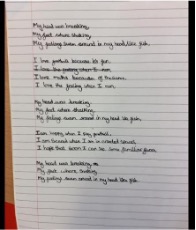 My head was humbling,
My feet where shaking,
My feelings swam around in my head like fish.
I love football because it's fun.
I love the feeling when I run.
I love maths because of the
I love the feeling when I run.
My head was humbling,
My feet where shaking,
My feelings swam around in my head like fish,
I am happy when I play football,
I am scared when I am in crowded spaces,
I hope that soon I can be
My head was humbling,
My feet where shaking,
My feelings swam around in my head like fish.